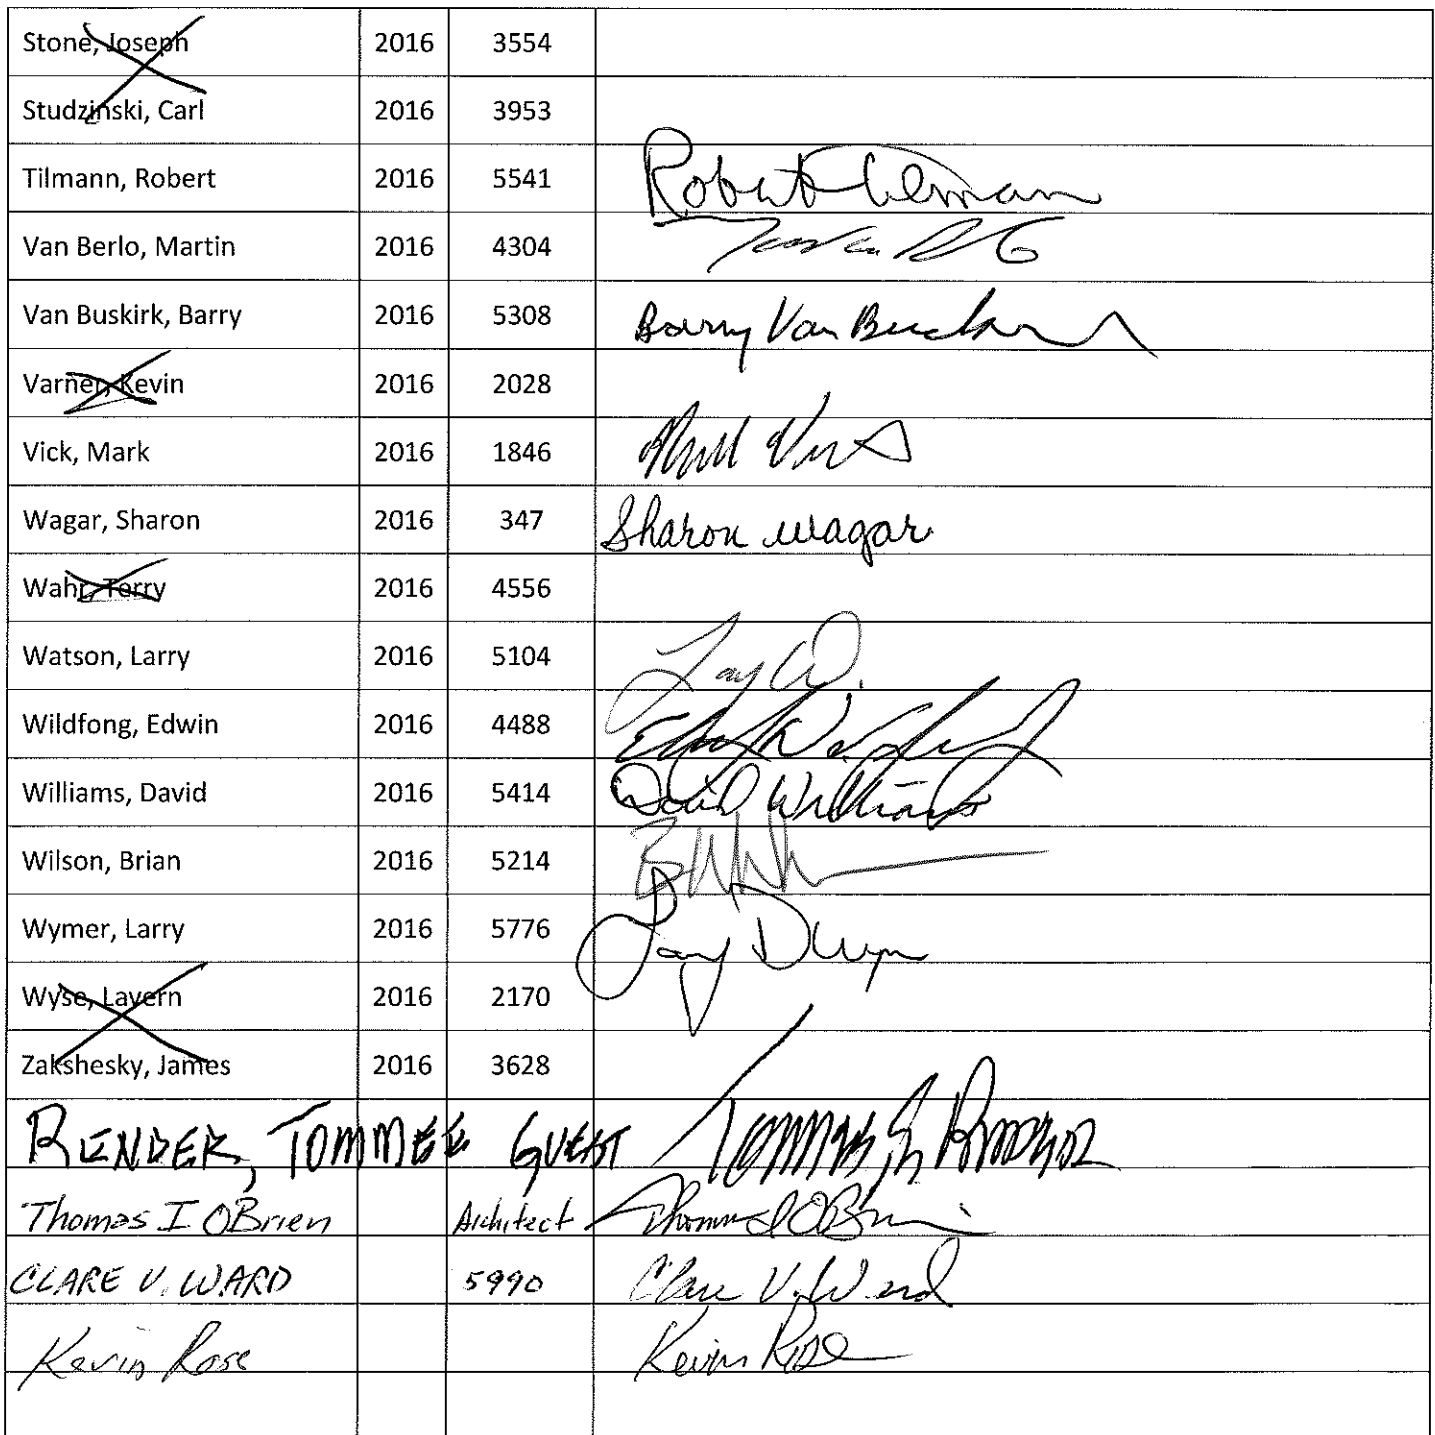 Stone, Joseph 2016 3554
Studzinski, Carl 2016 3953
Tilmann, Robert 2016 5541 Robert Tilmann
Van Berlo, Martin 2016 4304
Van Buskirk, Barry 2016 5308 Barry Van Buskirk
Varner, Kevin 2016 2028
Vick, Mark 2016 1846 Mark Vick
Wagar, Sharon 2016 347 Sharon Wagar
Wahr, Terry 2016 4556
Watson, Larry 2016 5104 Larry W.
Wildfong, Edwin 2016 4488
Williams, David 2016 5414 David Williams
Wilson, Brian 2016 5214
Wymer, Larry 2016 5776 Larry D Wymer
Wyse, Lavern 2016 2170
Zakshesky, James 2016 3628
RENDER, TOMMEE GUEST
Thomas I OBrien Architect Thomas I OBrien
CLARE V. WARD 5990 Clare V. Ward
Kevin Rose Kevin Rose